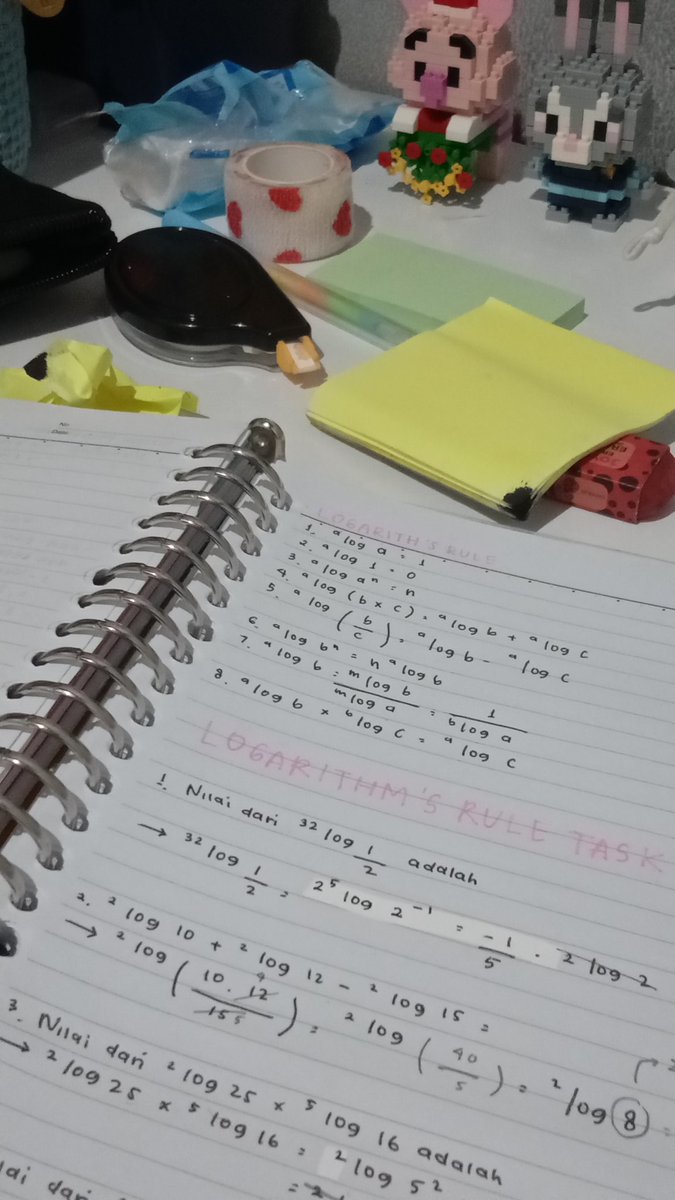 No
Date
LOGARITH'S RULE
1. ᵃlog a = 1
2. ᵃlog 1 = 0
3. ᵃlog aⁿ = n
4. ᵃlog (b × c) = ᵃlog b + ᵃlog c
5. ᵃlog (b/c) = ᵃlog b - ᵃlog c
6. ᵃlog bⁿ = n ᵃlog b
7. ᵃlog b = ᵐlog b / ᵐlog a = 1 / ᵇlog a
8. ᵃlog b × ᵇlog c = ᵃlog c
LOGARITHM'S RULE TASK
1. Nilai dari ³²log 1/2 adalah
→ ³²log 1/2 = 2⁵ log 2⁻¹ = -1/5 . 2 log 2
2. ²log 10 + ²log 12 - ²log 15 =
→ ²log (10 . 12 4 / 15 5) = ²log (40/5) = ²log 8 =
3. Nilai dari ²log 25 × ⁵log 16 adalah
→ ²log 25 × ⁵log 16 = ²log 5²
= 2
lai dari